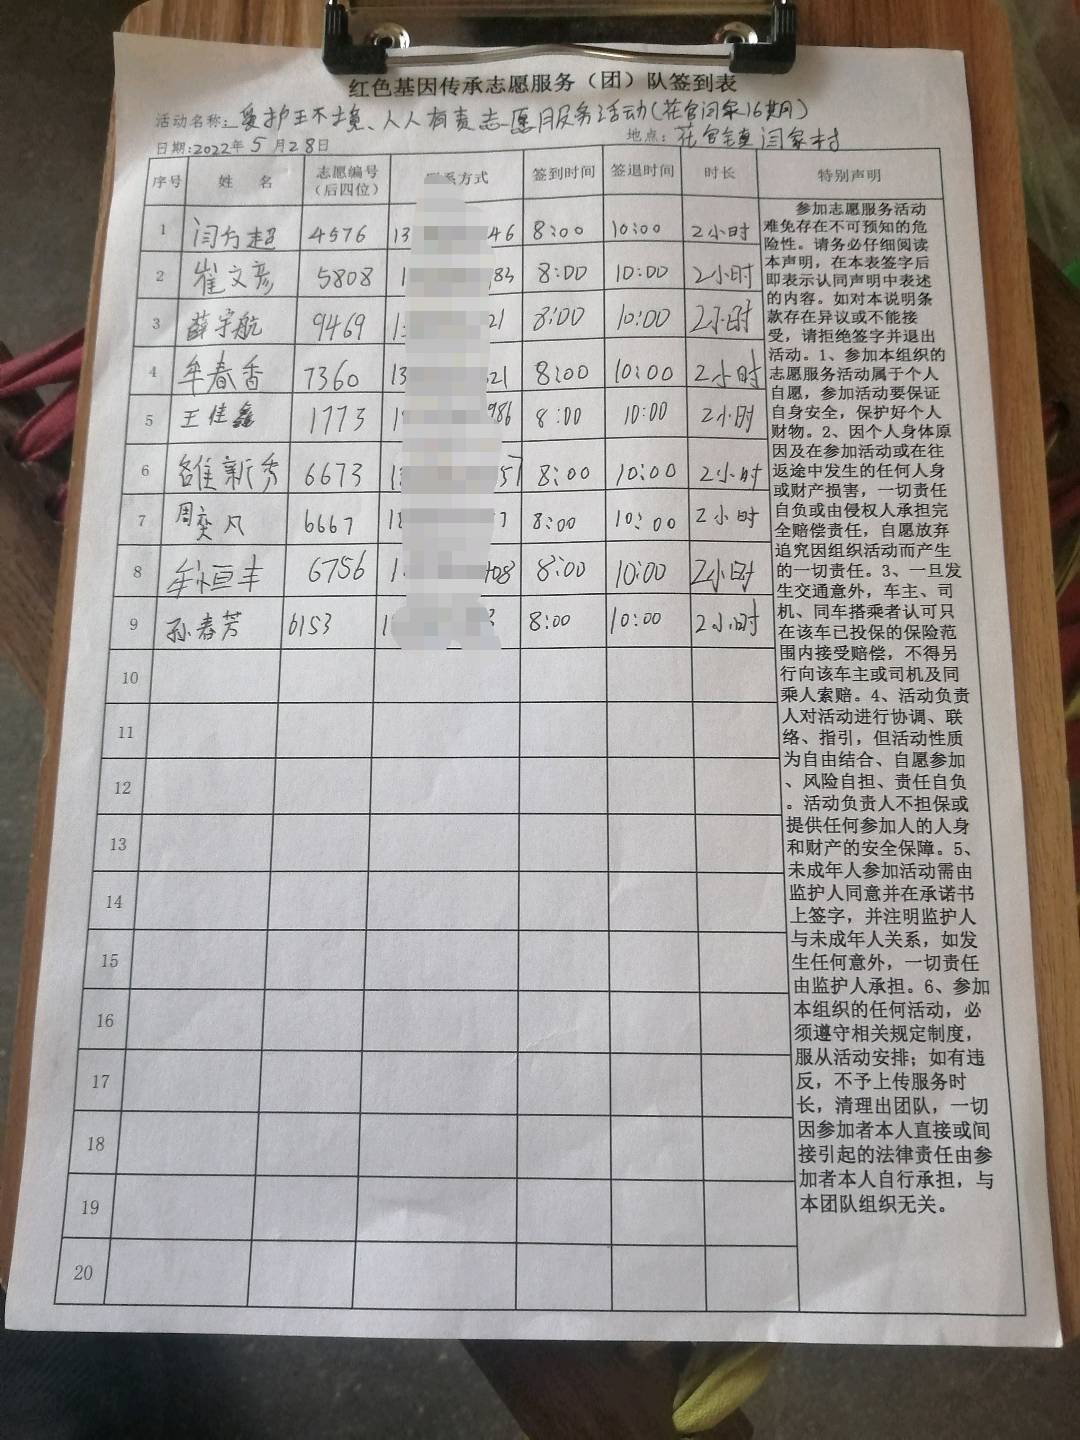 红色基因传承志愿服务（团）队签到表
活动名称：爱护环境、人人有责志愿服务活动(花官闫家16期)
日期：2022年5月28日 地点：花官镇闫家村
序号 姓 名 志愿编号（后四位） 系方式 签到时间 签退时间 时长 特别声明
1 闫方超 4576 13 46 8:00 10:00 2小时
2 崔文彦 5808 1 83 8:00 10:00 2小时
3 薛宇航 9469 13 21 8:00 10:00 2小时
4 牟春香 7360 13 21 8:00 10:00 2小时
5 王佳鑫 1773 1 986 8:00 10:00 2小时
6 新秀 6673 1 57 8:00 10:00 2小时
7 周奕凡 6667 18 7 8:00 10:00 2小时
8 牟恒丰 6756 1 408 8:00 10:00 2小时
9 孙春芳 6153 1 3 8:00 10:00 2小时
10
11
12
13
14
15
16
17
18
19
20
参加志愿服务活动
难免存在不可预知的危
险性。请务必仔细阅读
本声明，在本表签字后
即表示认同声明中表述
的内容。如对本说明条
款存在异议或不能接
受，请拒绝签字并退出
活动。1、参加本组织的
志愿服务活动属于个人
自愿，参加活动要保证
自身安全，保护好个人
财物。2、因个人身体原
因及在参加活动或在往
返途中发生的任何人身
或财产损害，一切责任
自负或由侵权人承担完
全赔偿责任，自愿放弃
追究因组织活动而产生
的一切责任。3、一旦发
生交通意外，车主、司
机、同车搭乘者认可只
在该车已投保的保险范
围内接受赔偿，不得另
行向该车主或司机及同
乘人索赔。4、活动负责
人对活动进行协调、联
络、指引，但活动性质
为自由结合、自愿参加
、风险自担、责任自负
。活动负责人不担保或
提供任何参加人的人身
和财产的安全保障。5、
未成年人参加活动需由
监护人同意并在承诺书
上签字，并注明监护人
与未成年人关系，如发
生任何意外，一切责任
由监护人承担。6、参加
本组织的任何活动，必
须遵守相关规定制度，
服从活动安排；如有违
反，不予上传服务时
长，清理出团队，一切
因参加者本人直接或间
接引起的法律责任由参
加者本人自行承担，与
本团队组织无关。